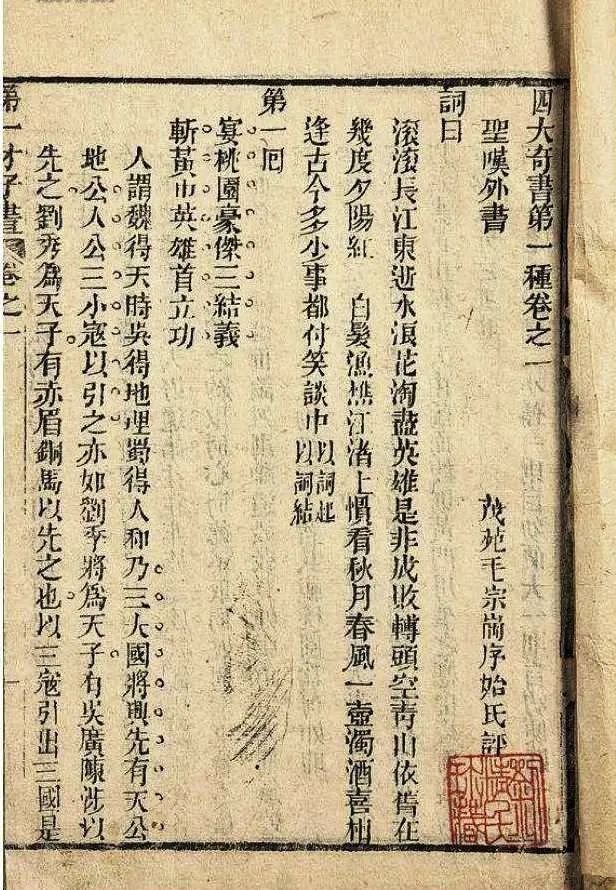 四大奇書第一種卷之一
聖嘆外書
茂苑毛宗崗序始氏評
詞曰
滾滾長江東逝水浪花淘盡英雄是非成敗轉頭空青山依舊在
幾度夕陽紅 白髮漁樵江渚上慣看秋月春風一壺濁酒喜相
逢古今多少事都付笑談中以詞起以詞結
第一回
宴桃園豪傑三結義
斬黃巾英雄首立功
人謂魏得天時吳得地理蜀得人和乃三大國將興先有天公
地公人公三小寇以引之亦如劉季將為天子有吳廣陳涉以
先之劉秀為天子有赤眉銅馬以先之也以三寇引出三國是
第一才子書 卷之一